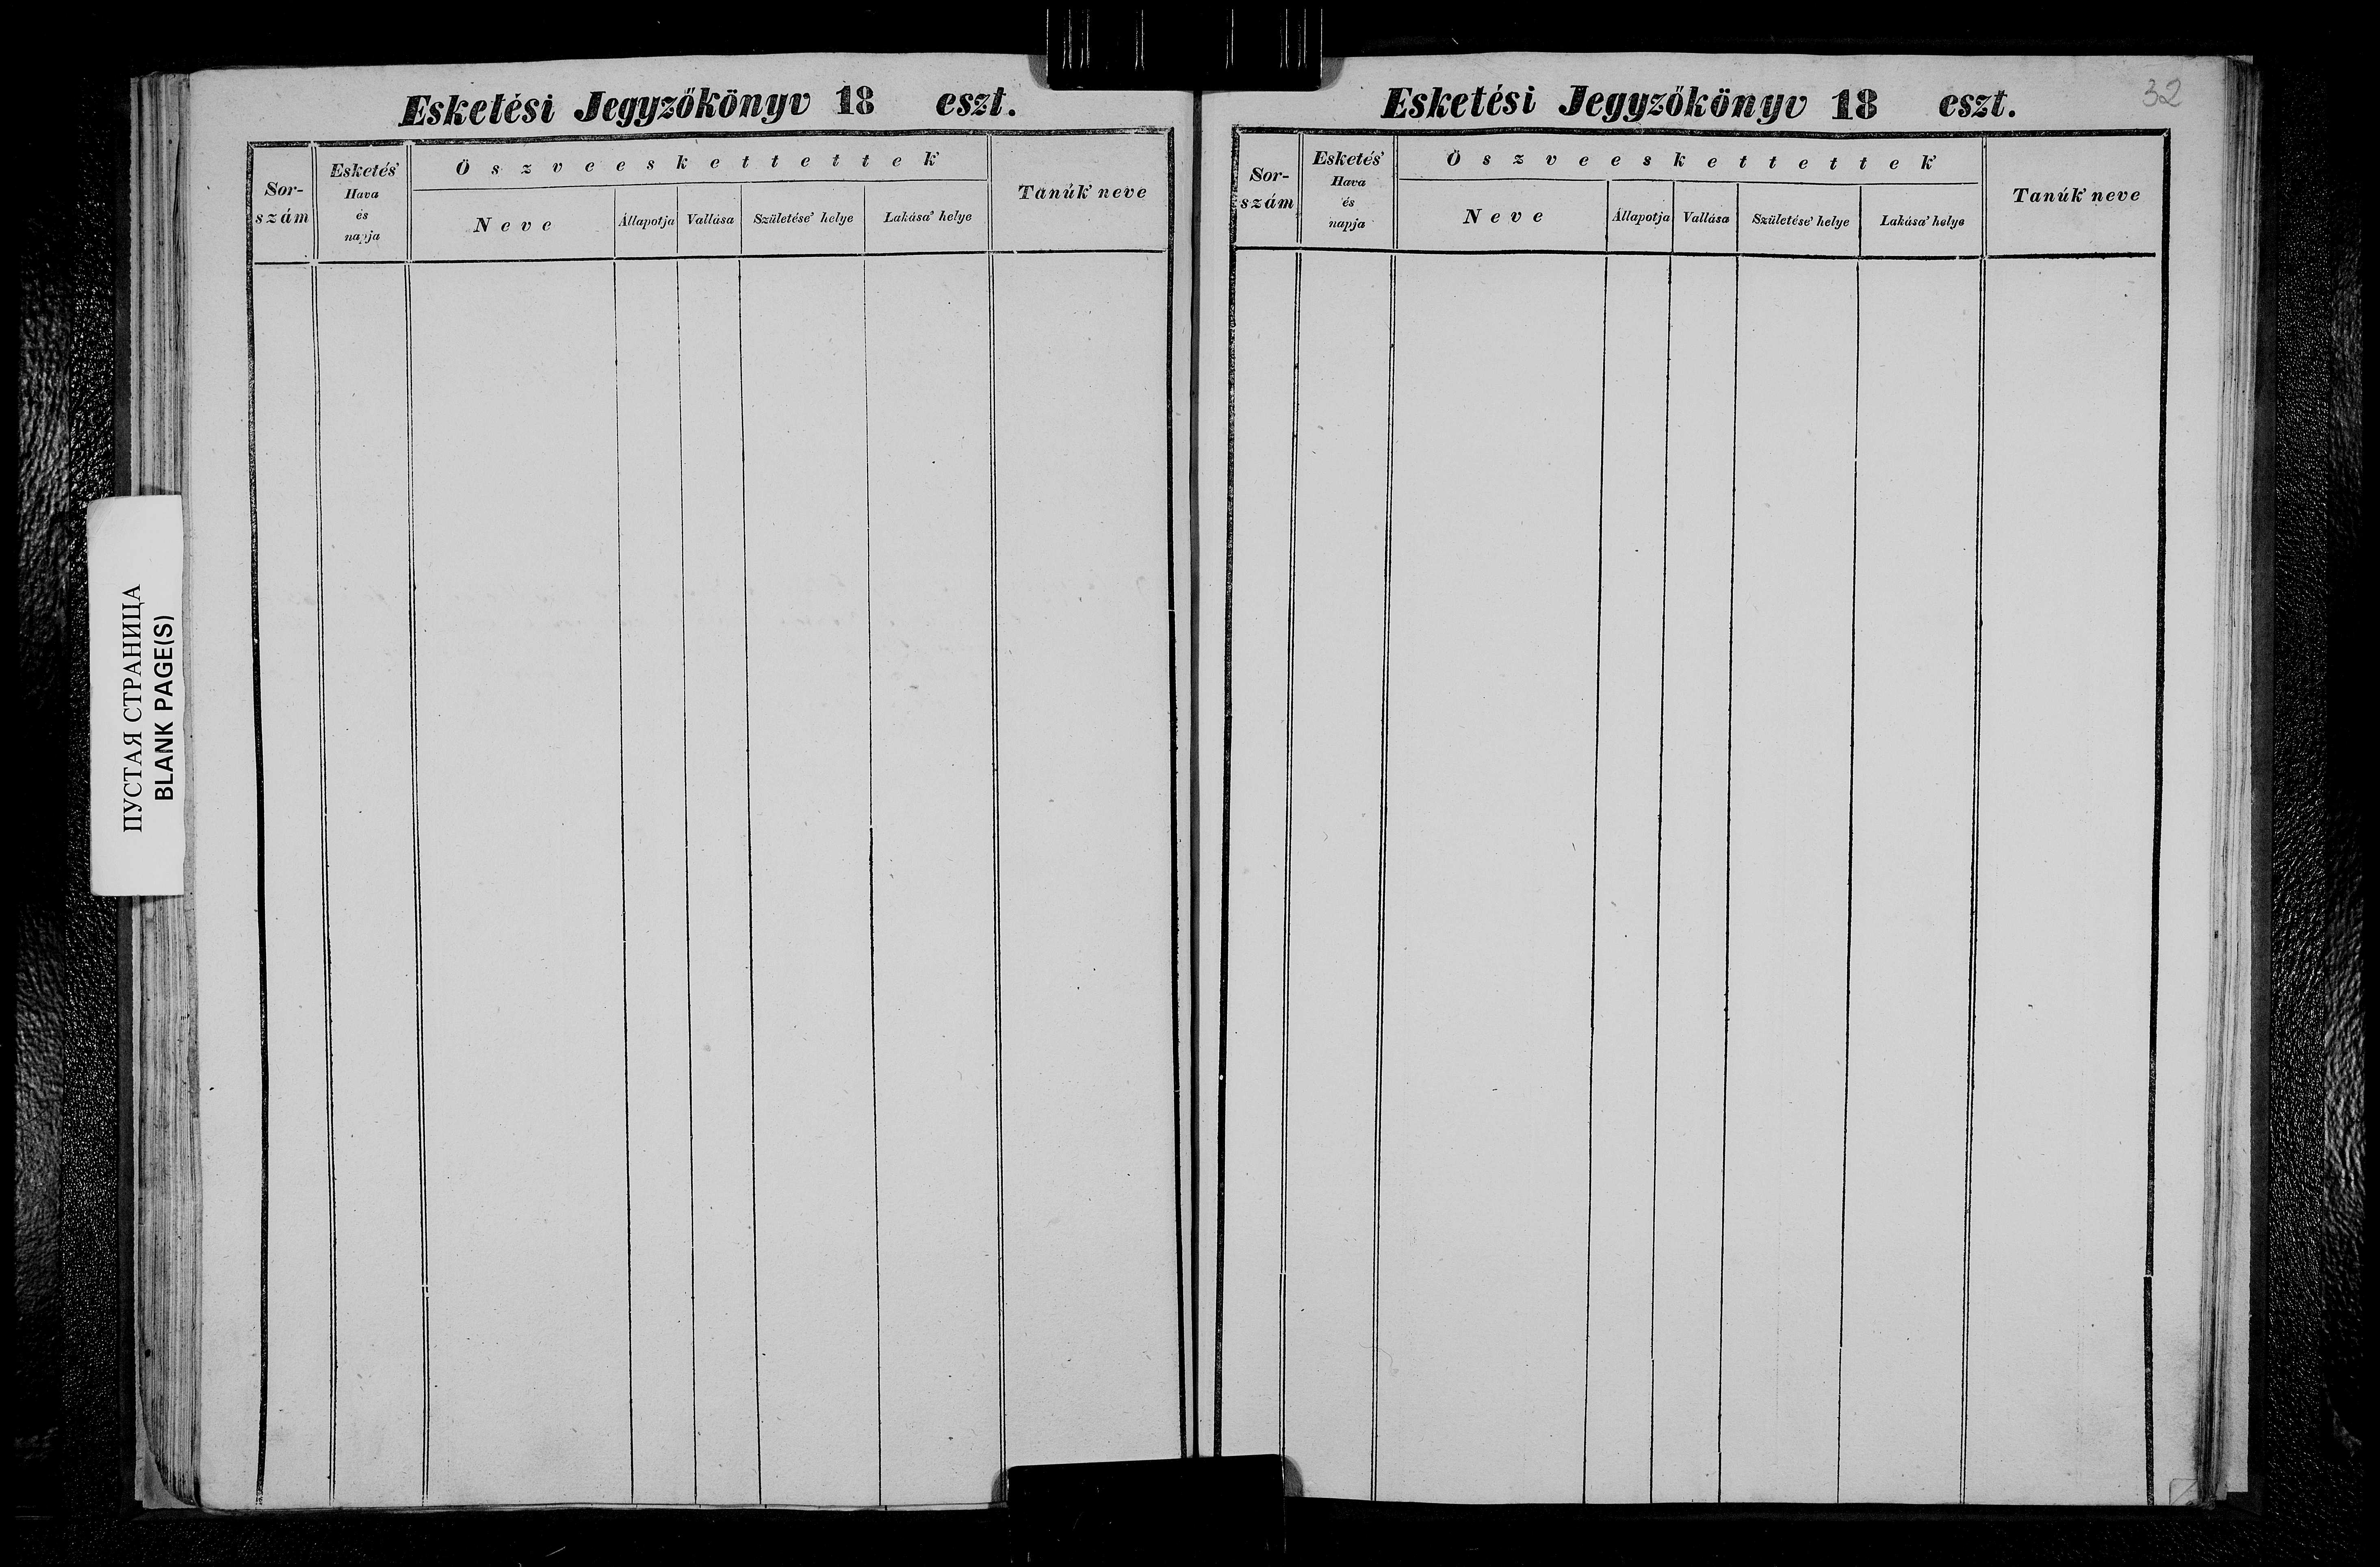 Esketési Jegyzőkönyv 18 eszt.
Sor-
szám
Esketés'
Hava
és
napja
Öszveeskettettek'
Neve
Állapotja
Vallása
Születése' helye
Lakása' helye
Tanúk' neve
ПУСТАЯ СТРАНИЦА
BLANK PAGE(S)
32
Esketési Jegyzőkönyv 18 eszt.
Sor-
szám
Esketés'
Hava
és
napja
Öszveeskettettek'
Neve
Állapotja
Vallása
Születése' helye
Lakása' helye
Tanúk' neve